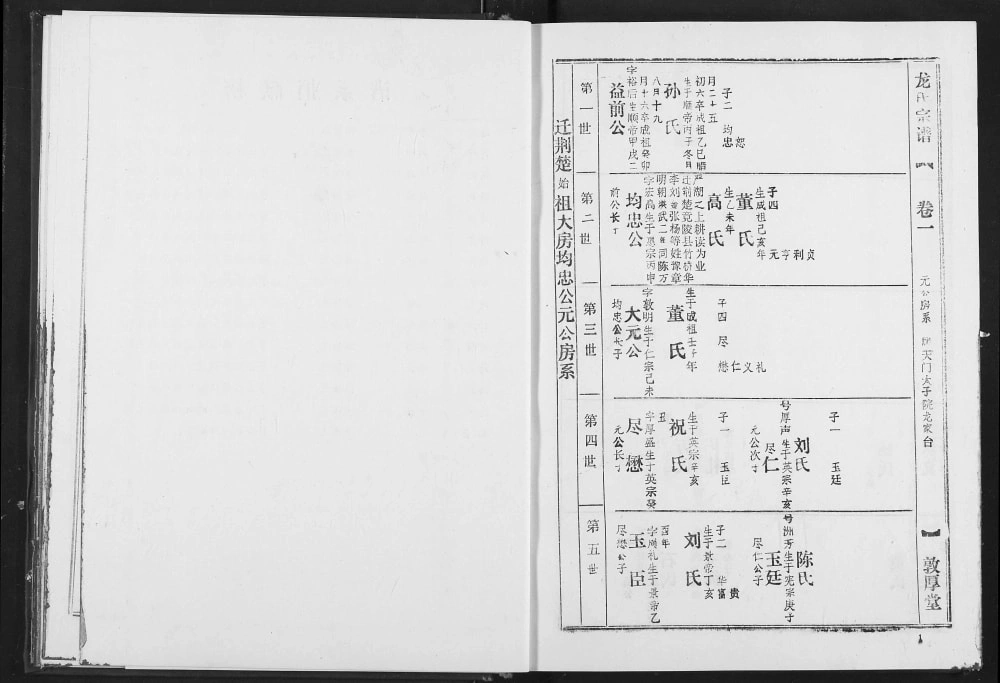 龙氏宗谱
卷一
元公房系
天门太子院龙家台
敦厚堂
1
迁荆楚始祖大房均忠公元公房系
第一世
益前公
字裕后生顺帝甲戌二
月十六卒成祖癸卯
八月十九
孙氏
生于顺帝丙子冬月
初六卒成祖乙巳腊
月二十五
子二 均忠 恕
第二世
均忠公
前公长子
字宏高生于惠宗丙申
明朝洪武二年同陈万
李刘黄张杨等姓豫章
迁荆楚竟陵县竹桥华
严湖之上耕读为业
高氏
生乙未年
董氏
生成祖己亥年
子四 元亨利贞
第三世
大元公
均忠公长子
字敦明生于仁宗己未
董氏
生于成祖壬子年
子四 尽懋仁义礼
第四世
尽懋
元公长子
字厚盛生于英宗癸
丑
祝氏
生于英宗辛亥
子一 玉臣
尽仁
元公次子
号厚声生于英宗辛亥
刘氏
子一 玉廷
第五世
玉臣
尽懋公子
字周礼生于景帝乙
酉年
刘氏
生于景帝丁亥
子二 华富 贵
玉廷
尽仁公子
号洲芳生于宪宗庚子
陈氏